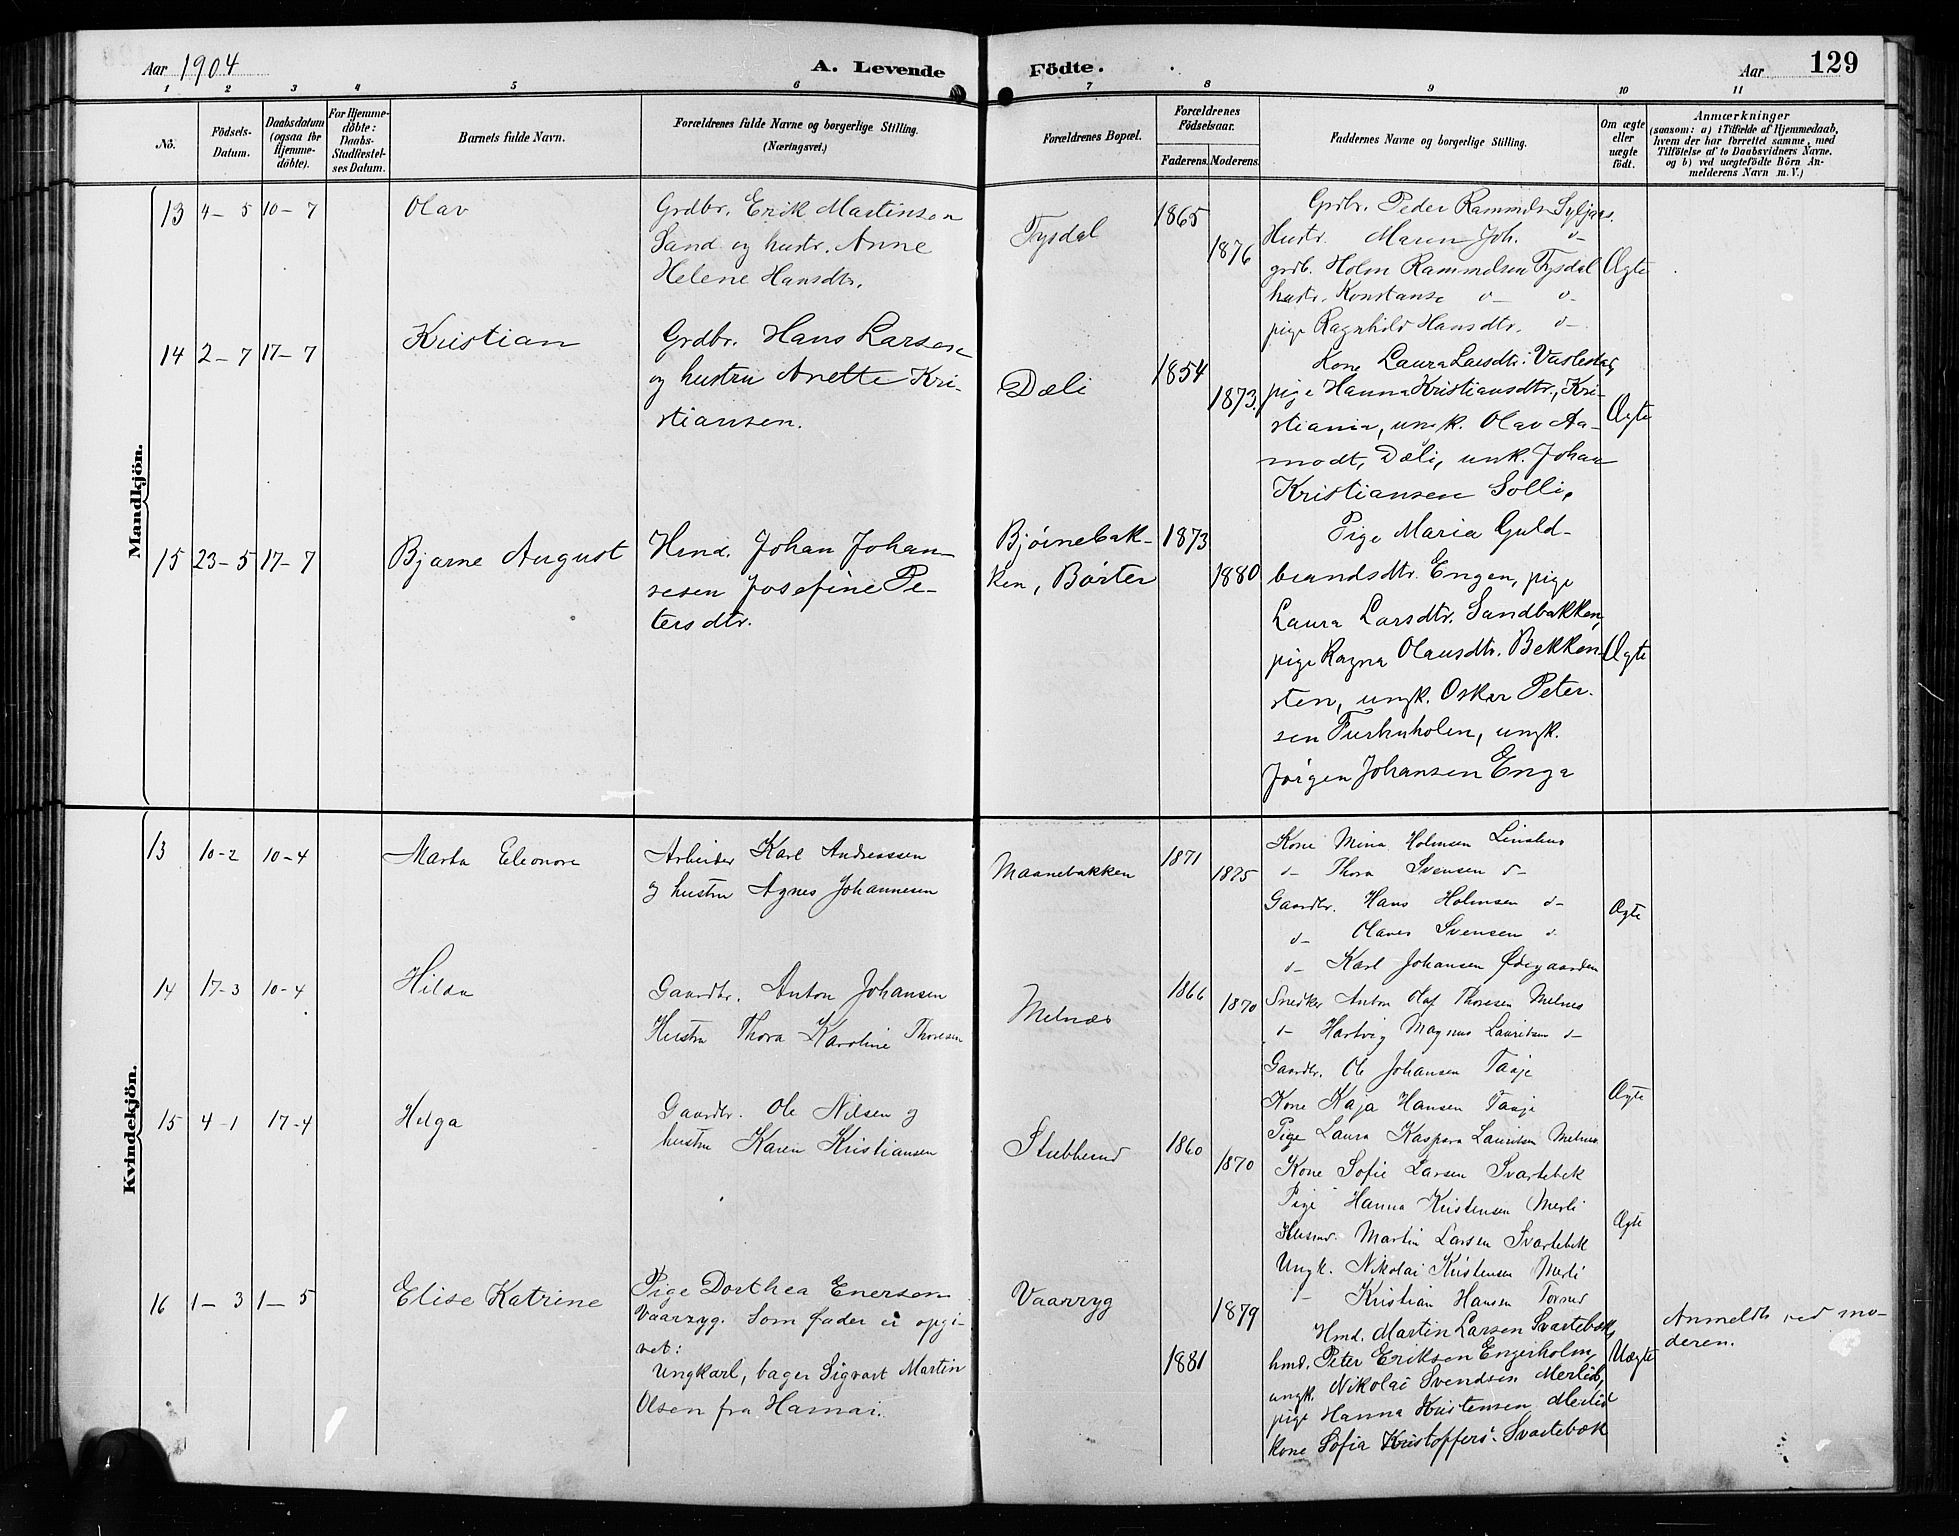 Aar 1904
A. Levende
Födte.
Aar
129
1 2 3 4 5 6 7 8 9 10 11
Nö.
Födsels-
Datum.
Daabsdatum
(ogsaa for
Hjemme-
döbte).
For Hjemme-
döbte:
Daabs-
Stadfæstel-
ses Datum.
Barnets fulde Navn.
Forældrenes fulde Navne og borgerlige Stilling.
(Næringsvei.)
Forældrenes Bopæl.
Forældrenes
Födselsaar.
Faderens. Moderens.
Faddernes Navne og borgerlige Stilling.
Om ægte
eller
uægte
födt.
Anmærkninger
(saasom: a) i Tilfælde af Hjemmedaab,
hvem der har forrettet samme, med
Tilföielse af to Daabsvidners Navne.
og b) ved uægtefödte Börn An-
melderens Navn m. V.)
Mandkjön.
13 4-5 10-7 Olav
Grdbr. Erik Martinsen
Sand og hustr. Anne
Helene Hansdtr.
Tysdal
1865
1876
Grdbr. Peder Rammels
Hustr. Maren Joh. d-
grdb. Holm Rammelsen Tysdal
hustr. Konstanse d- d-
pige Ragnhild Hansdtr. d-
Ægte
14 2-7 17-7 Kristian
Grdbr. Hans Larsen
og hustru Anette Kri-
stiansen.
Dæli
1854
1873.
Kone Laura Larsdtr.
pige Hanna Kristiansdtr., Kri-
stiania, unk. Olav Aa-
modt, Dæli, unk. Johan
Kristiansen Solli,
Ægte
15 23-5 17-7 Bjarne August
Hmd. Johan Johan-
sesen Josefine Pe-
tersdtr.
Bjørnebak-
ken, Børter
1873
1880
Pige Maria Guld-
brandsdtr. Engen, pige
Laura Larsdtr. Sandbakken,
pige Ragna Olausdtr. Bekken-
sten, ungk. Oskar Peter-
sen Furkuholen, ungk.
Jørgen Johansen Enga
Ægte
Kvindekjön.
13 10-2 10-4 Marta Eleonore
Arbeider Karl Andreassen
og hustru Agnes Johannesen
Maanebakken
1871
1875
Kone Mina Holmsen
d- Thora Svensen d-
Gaardbr. Hans Holmsen d-
d- Olaves Svensen d.
d- Karl Johansen Ødegaarden
Ægte
14 17-3 10-4 Hilda
Gaardbr. Anton Johansen
Hustru Thora Karoline Thoresen
Melnæs
1866
1870
Snedker Anton Olaf Thoresen Melnes
d- Hartvig Magnus Lauritsen d-
Gaardbr. Ole Johansen Taaje
Kone Kaja Hansen Taaje
Pige Laura Kaspara Lauritsen Melnes
Ægte
15 4-1 17-4 Helga
Gaardbr. Ole Nilsen og
hustru Karen Kristiansen
Stubberud
1860
1870
Kone Sofie Larsen Svartebek
Pige Hanna Kristensen Merli
Husmd. Martin Larsen Svartebek
Ungk. Nikolai Kristensen Merli
d- Kristian Hansen
Ægte
16 1-3 1-5 Elise Katrine
Pige Dorthea Enersen
Vaarryg. Som fader er opgi-
vet:
Ungkarl, bager Sigvart Martin
Olsen fra Hamar.
Vaarryg
1879
1881
Hmd. Martin Larsen Svartebæk,
hmd. Peter Eriksen Engerholm,
ungk. Nikolai Svendsen Merlid,
pige Hanna Kristensen Merlid
kone Sofia Kristoffers. Svartebæk
Uægte
Anmeldt ved mo-
deren.